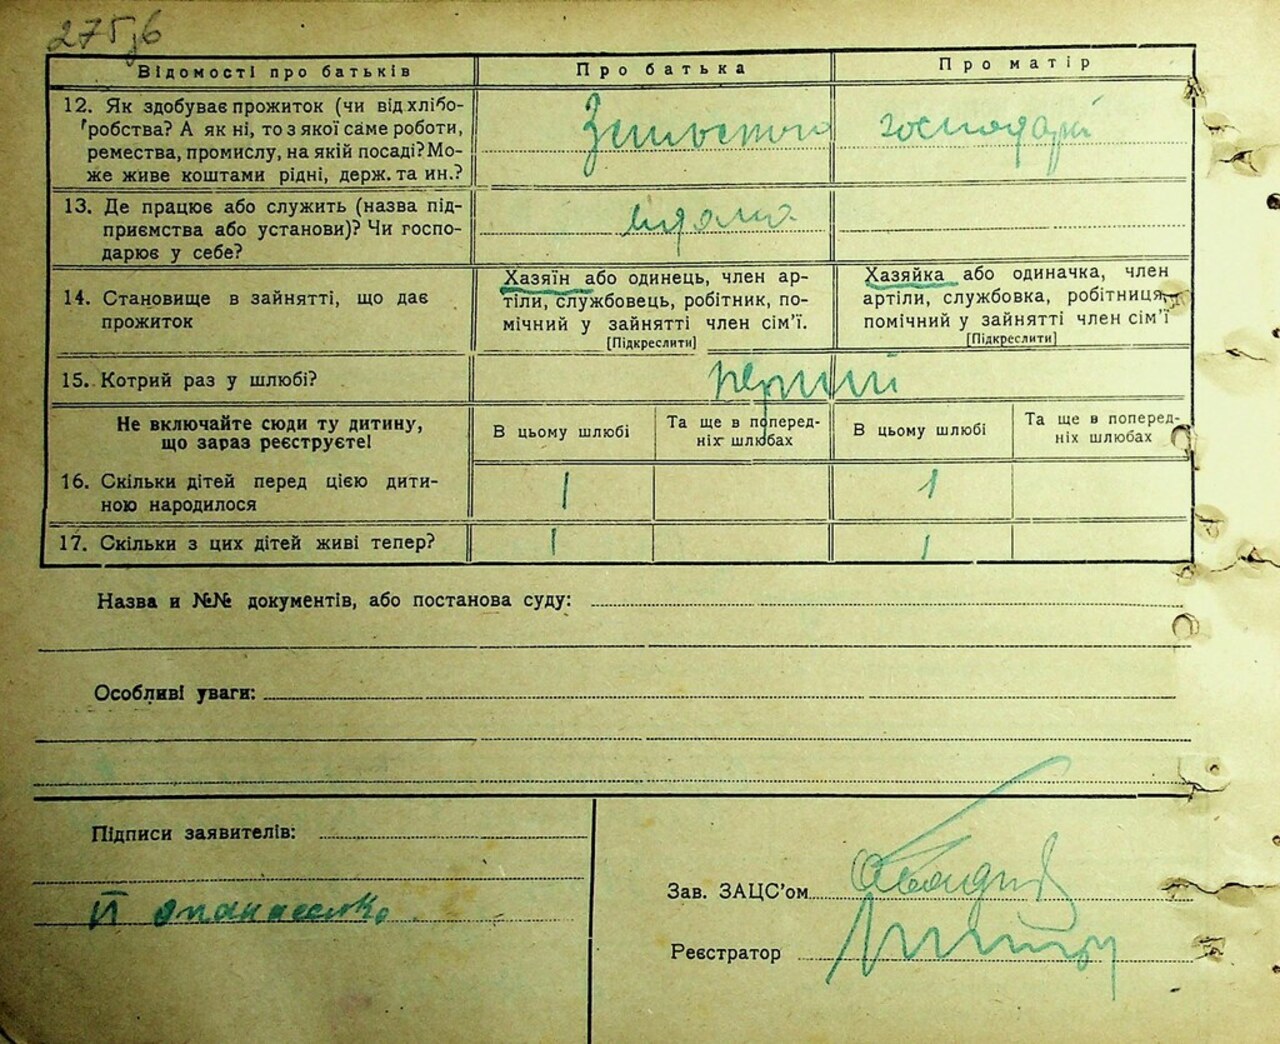 275
Відомості про батьків
Про батька
Про матір
12. Як здобуває прожиток (чи від хлібо-
робства? А як ні, то з якої саме роботи,
ремества, промислу, на якій посаді? Мо-
же живе коштами рідні, держ. та ин.?
господарй
13. Де працює або служить (назва під-
приємства або установи)? Чи госпо-
дарює у себе?
14. Становище в зайнятті, що дає
прожиток
Хазяїн або одинець, член ар-
тіли, службовець, робітник, по-
мічний у зайнятті член сім’ї.
[Підкреслити]
Хазяйка або одиначка, член
артіли, службовка, робітниця,
помічний у зайнятті член сім’ї
[Підкреслити]
15. Котрий раз у шлюбі?
перший
Не включайте сюди ту дитину,
що зараз реєструєте!
В цьому шлюбі
Та ще в поперед-
ніх шлюбах
В цьому шлюбі
Та ще в поперед-
ніх шлюбах
16. Скільки дітей перед цією дити-
ною народилося
1
1
17. Скільки з цих дітей живі тепер?
1
1
Назва и №№ документів, або постанова суду:
Особливі уваги:
Підписи заявителів:
Й Опанасенко
Зав. ЗАЦС’ом
Реєстратор